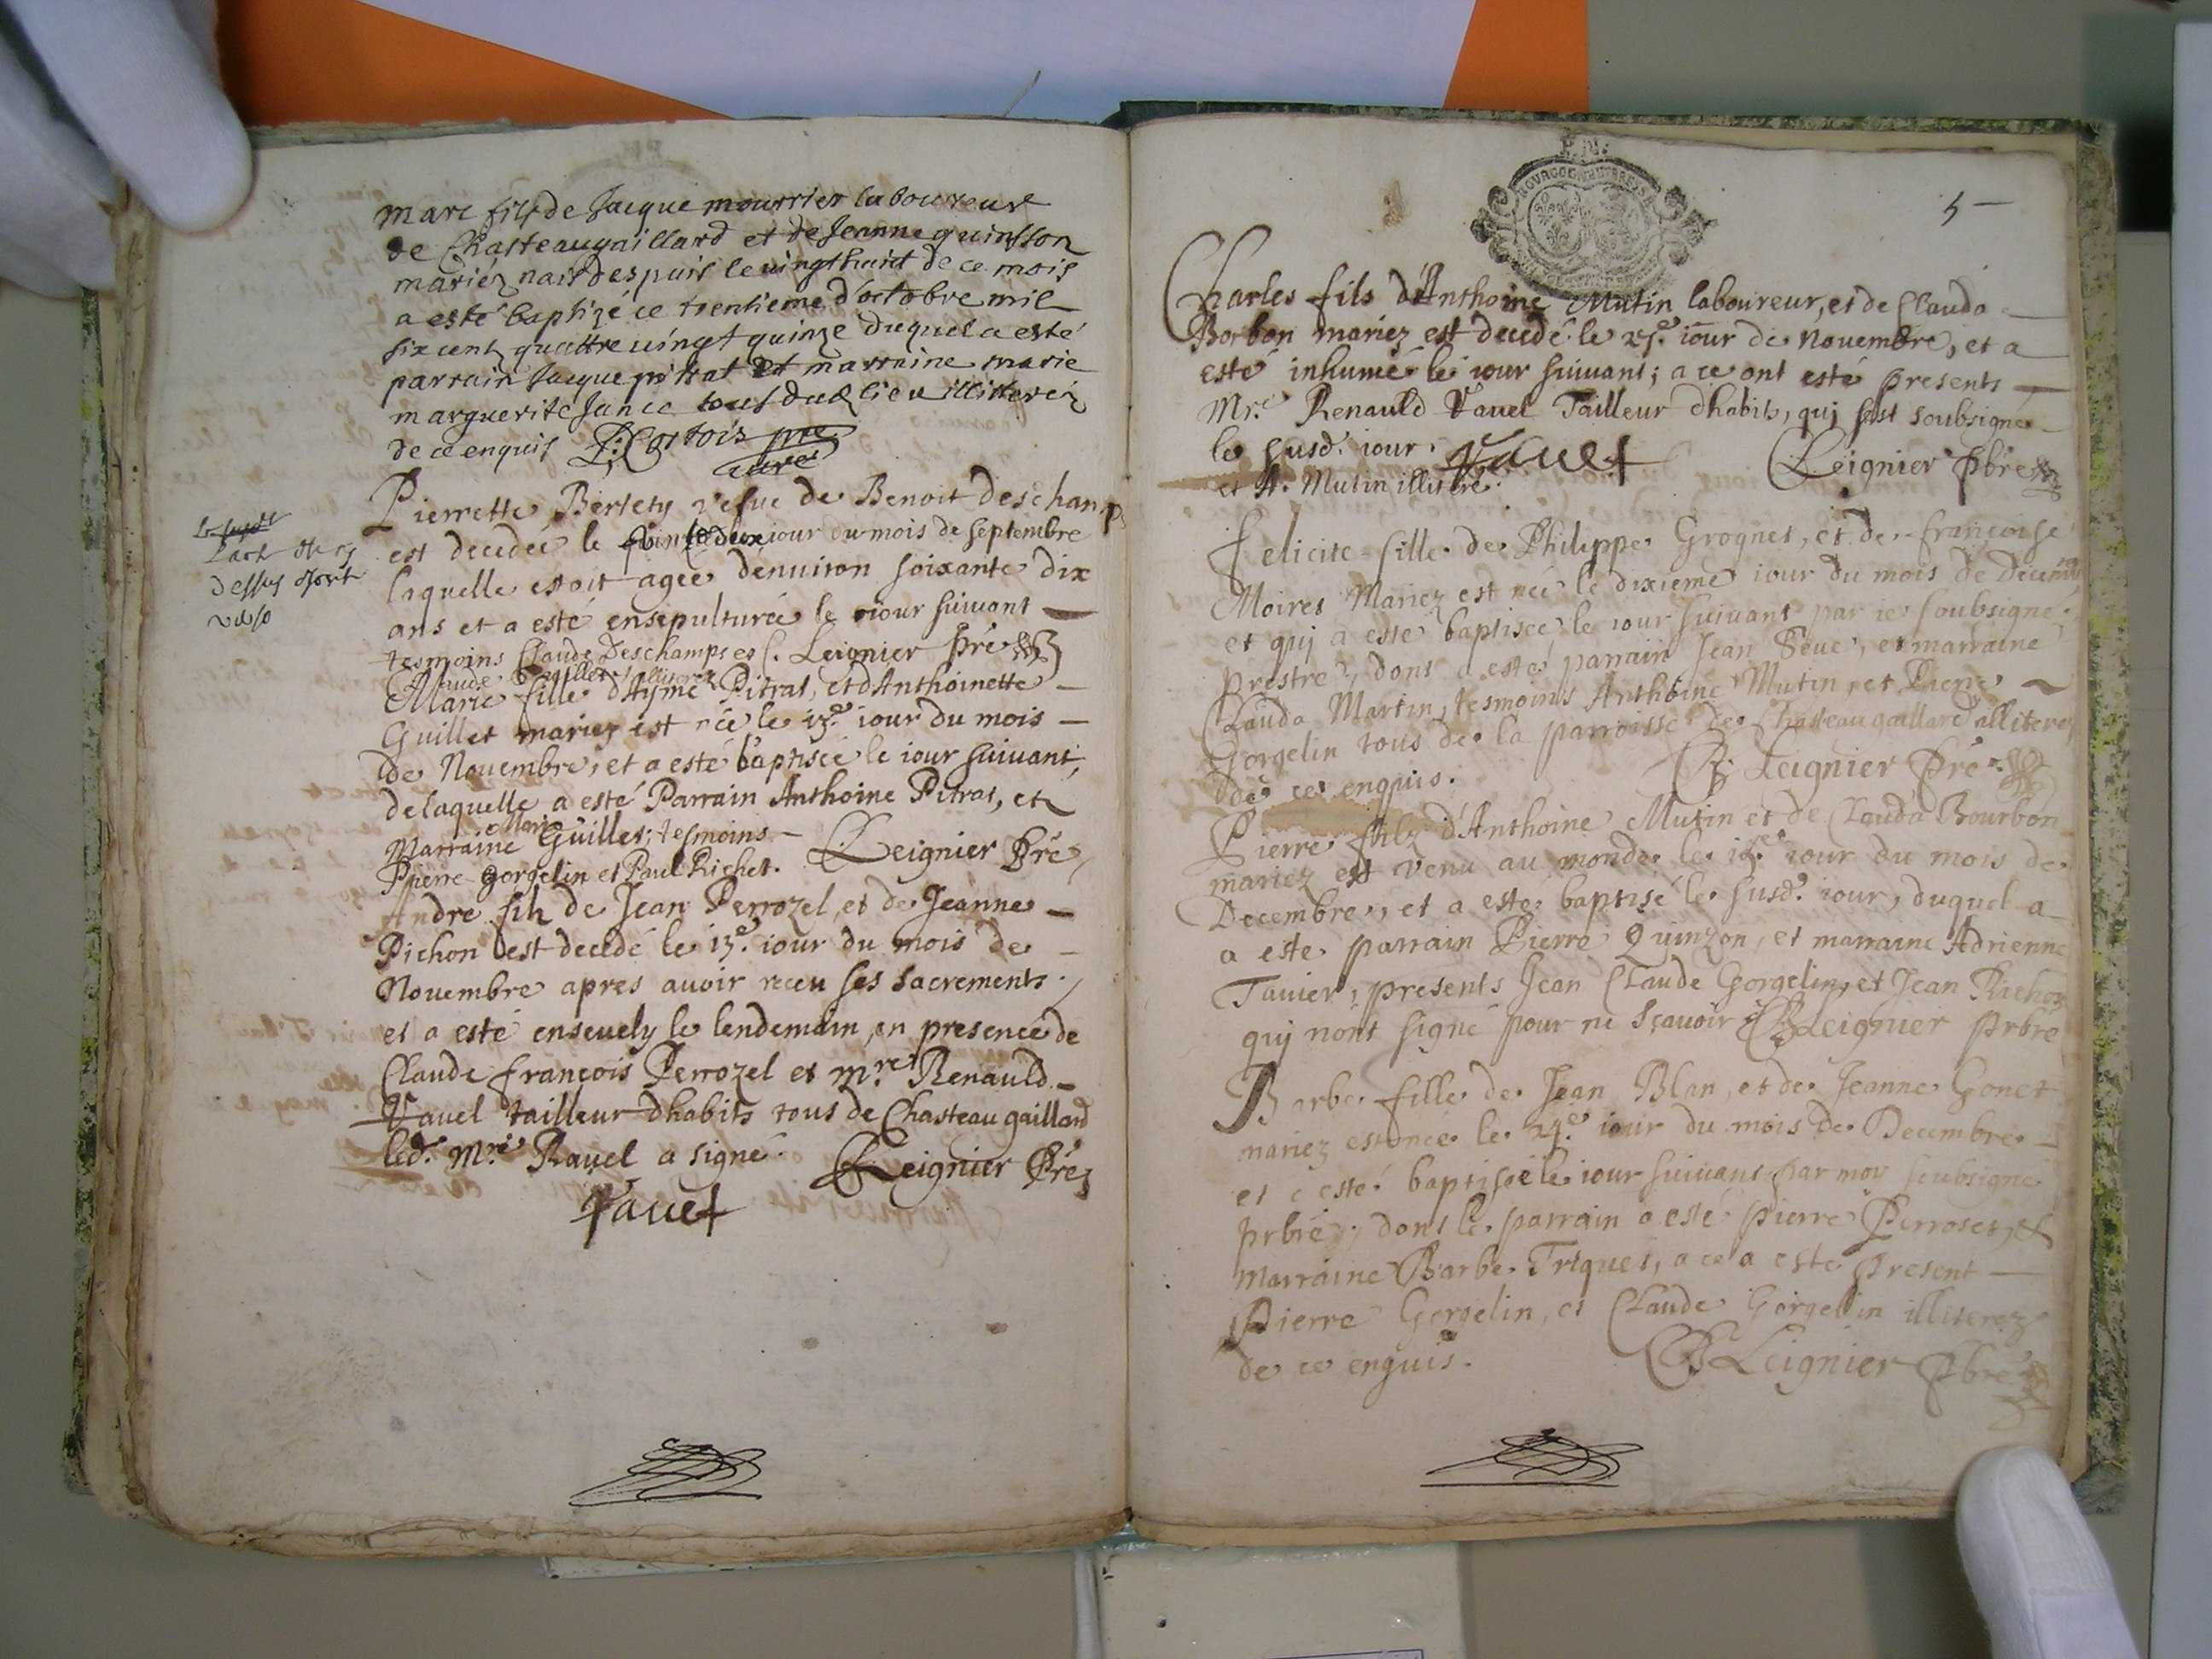 marc fils de Jacque mourrier laboureur
de Chasteaugaillard et de Jeanne quinsson
mariez nait despuis le vingthuict de ce mois
a esté baptizé ce trentieme d'octobre mil
six cent quattre vingt quinze duquel a esté
parrain Jacque pitrat et marraine marie
marguerite Janee tous dud lieu illiterez
de ce enquis P: Cortois pre
curé
Pierrette Berlety vefue de Benoit deschamp
est decedée le jour du mois de septembre
laquelle estoit agée denuiron soixante dix
ans et a esté ensepulturée le iour suiuant
tesmoins Claude Deschamps et C. Leignier Pre
Claude Guillet illiterez
Marie fille d'Aymé Pitrat, et d'Anthoinette
Guillet mariez est née le 13.e iour du mois
de Nouembre, et a esté baptisée le iour suiuant,
de laquelle a esté Parrain Anthoine Pitrat, et
Marraine Marie Guillet; tesmoins
Pierre Gorgelin et Paul Richet. Leignier Pre
Andre fils de Jean Perrozel, et de Jeanne
Pichon est decedé le 13.e iour du mois de
Nouembre apres auoir receu ses sacrements
et a esté enseuely le lendemain, en presence de
Claude françois Perrozel et M.re Renauld
Rauel tailleur dhabits tous de Chasteau gaillard
led. M.re Rauel a signé. Leignier Pre
Rauel
5
Charles fils d'Anthoine Mutin laboureur, et de Clauda
Borbon mariez est decedé le 25.e iour de Nouembre, et a
esté inhumé le iour suiuant; a ce ont esté presents
M.re Renauld Rauel Tailleur dhabits, quj sest soubsigné
le susd. iour. Rauel Leignier Pbre
et A. Mutin illiteré.
Felicite fille de Philippe Grognet, et de françoise
Moiret Mariez est née le dixieme iour du mois de Decembre
et quj a esté baptisée le iour suiuant par ie soubsigné
prestre, dont a esté parrain Jean Seue, et marraine
Clauda Martin, tesmoins Anthoine Mutin, et Pierre
Gorgelin tous de la parroisse de Chasteau gaillard illiterez
de ce enquis. Leignier Pre
Pierre filz d'Anthoine Mutin et de Clauda Bourbon
mariez est venu au monde le iour du mois de
Decembre, et a esté baptisé le susd. iour, duquel a
a este parrain Pierre Quinzon, et marraine Adrienne
Tauier, presents Jean Claude Gorgelin, et Jean Richon
quj n'ont signé pour ne sçauoir Leignier Prbre
Barbe fille de Jean Blan, et de Jeanne Gonet
mariez est née le 24.e iour du mois de Decembre
et a esté baptisée le iour suiuant par moy soubsigné
prbre, dont le parrain a esté Pierre Perroset, et
Marraine Barbe Triquet, a ce a esté present
Pierre Gorgelin, et Claude Gorgelin illiterez
de ce enquis. Leignier Pbre